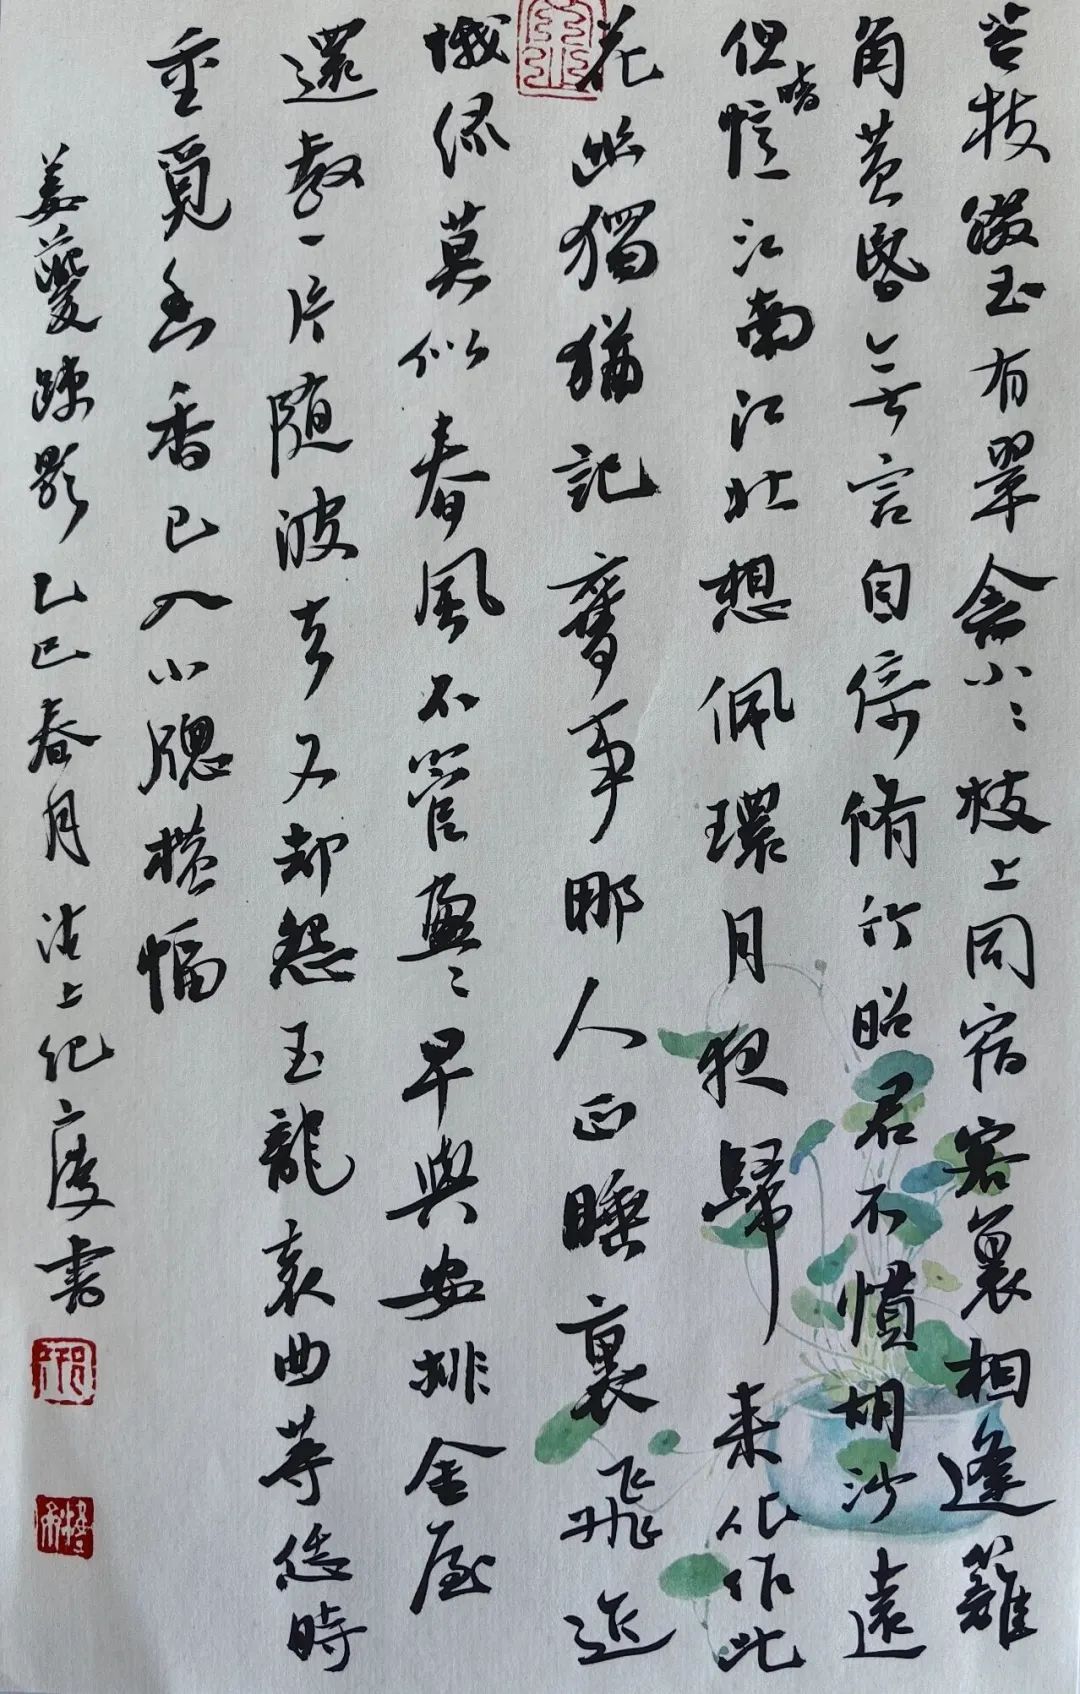 苔枝綴玉有翠禽小〻枝上同宿客裏相逢籬
角黄昏無言自倚脩竹昭君不慣胡沙遠
但暗憶江南江北想佩環月夜歸来化作此
花幽獨猶記舊事那人正睡裏飛近
蛾绿莫似春風不管盈〻早與安排金屋
還教一片随波去又却怨玉龍哀曲等恁時
重覓幽香已入小牕横幅
姜夔疎影乙巳春月沽上纪慶書